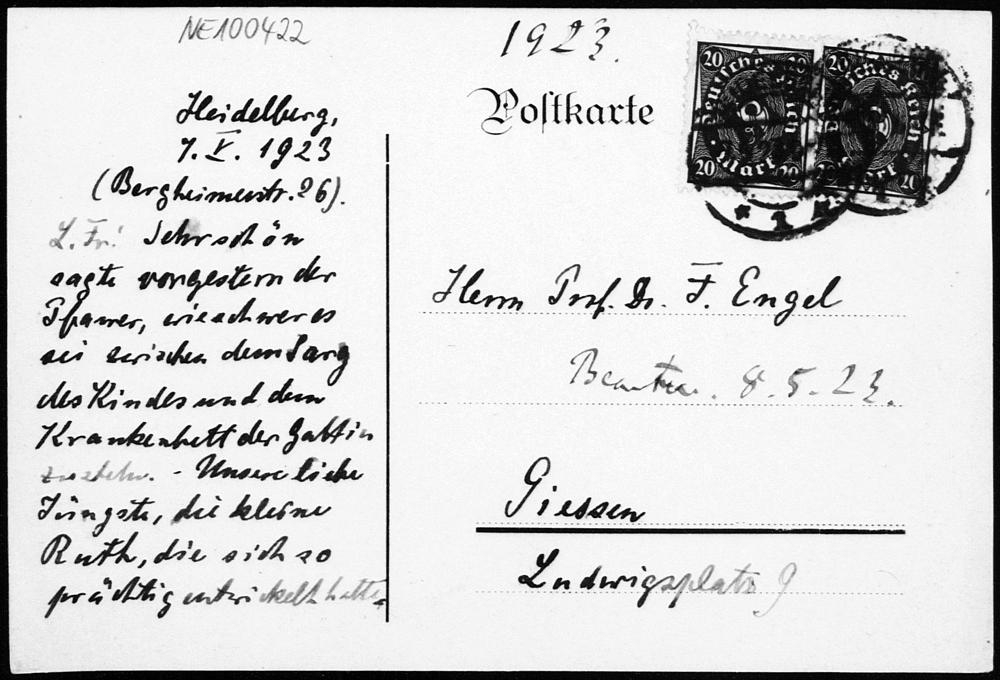 NE100422
1923.
Postkarte
20 20
Deutsches Reich
Mark
20 20
20 20
Deutsches Reich
Mark
20 20
Heidelberg,
7. V. 1923
(Bergheimerstr. 26).
L. Fr.! Sehr schön
sagte vorgestern der
Pfarrer, wie schwer es
sei zwischen dem Sarg
des Kindes und dem
Krankenbett der Gattin
zu stehn. - Unsere liebe
Jüngste, die kleine
Ruth, die sich so
prächtig entwickelt hatte,
Herrn Prof. Dr. F. Engel
8.5.23.
Giessen
Ludwigsplatz 9